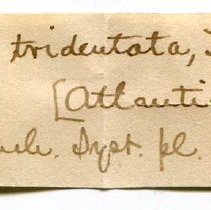 tridentata,
[Atlanti
Syst. pl.